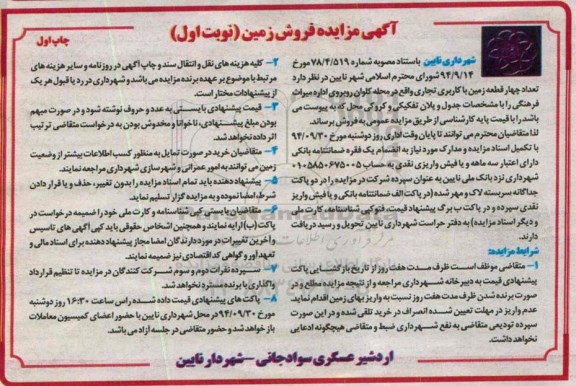 آگهی مزایده فروش زمین (نوبت اول)
چاپ اول
شهرداری نایین باستناد مصوبه شماره ۷۸/۴/۵۱۹ مورخ
۹۴/۹/۱۴ شورای محترم اسلامی شهر نایین در نظر دارد
تعداد چهار قطعه زمین با کاربری تجاری واقع در محله کلوان روبروی اداره میراث
فرهنگی را با مشخصات جدول و پلان تفکیکی و کروکی محل که به پیوست می
باشد را با قیمت پایه کارشناسی از طریق مزایده عمومی به فروش برساند.
لذا متقاضیان محترم می توانند تا پایان وقت اداری روز دوشنبه مورخ ۹۴/۰۹/۳۰
با تکمیل اسناد مزایده و مدارک مورد نیاز به انضمام یک فقره ضمانتنامه بانکی
دارای اعتبار سه ماهه و یا فیش واریزی نقدی به حساب ۰۱۰۵۸۵۰۶۷۵۰۰۵
شهرداری نزد بانک ملی نایین به عنوان سپرده شرکت در مزایده را در دو پاکت
جداگانه سربسته لاک و مهر شده (در پاکت الف ضمانتنامه بانکی و یا فیش واریز
نقدی سپرده و در پاکت ب برگ پیشنهاد قیمت، فتوکپی شناسنامه، کارت ملی
و دیگر اسناد مزایده) به دفتر حراست شهرداری نایین تحویل و رسید دریافت
دارند.
شرایط مزایده:
۱- متقاضی موظف است ظرف مدت هفت روز از تاریخ بازگشایی پاکت
پیشنهادی قیمت به دبیرخانه شهرداری مراجعه و از نتیجه مزایده مطلع و در
صورت برنده شدن ظرف مدت هفت روز نسبت به واریز بهای زمین اقدام نماید.
عدم واریز در مهلت تعیین شده انصراف در خرید تلقی شده و در این صورت
سپرده تودیعی متقاضی به نفع شهرداری ضبط و متقاضی هیچگونه ادعایی
نخواهد داشت.
۲- کلیه هزینه های نقل و انتقال سند و چاپ آگهی در روزنامه و سایر هزینه های
مرتبط با موضوع بر عهده برنده مزایده می باشد و شهرداری در رد یا قبول هر یک
از پیشنهادات مختار است.
۳- قیمت پیشنهادی بایستی به عدد و حروف نوشته شود و در صورت مبهم
بودن مبلغ پیشنهادی، ناخوانا و مخدوش بودن به درخواست متقاضی ترتیب
اثر داده نخواهد شد.
۴- متقاضیان خرید در صورت تمایل به منظور کسب اطلاعات بیشتر از وضعیت
زمین می توانند به امور عمرانی و شهرسازی شهرداری مراجعه نمایند.
۵- پیشنهاد دهنده باید تمام اسناد مزایده را بدون تغییر، حذف و یا قرار دادن
شرط، امضا نموده و به مزایده گزار تسلیم نماید.
۶- متقاضیان بایستی کپی شناسنامه و کارت ملی خود را ضمیمه درخواست در
پاکت (ب) ارایه نمایند و همچنین اشخاص حقوقی باید کپی آگهی های تاسیس
و آخرین تغییرات در مورد دارندگان امضا مجاز پیشنهاد دهنده برای اسناد مالی و
تعهدآور و گواهی کد اقتصادی نیز ضمیمه نمایند.
۷- سپرده نفرات دوم و سوم شرکت کنندگان در مزایده تا تنظیم قرارداد
واگذاری با برنده مسترد نخواهد شد.
۸- پاکت های پیشنهادی قیمت داده شده راس ساعت ۱۶:۳۰ روز دوشنبه
مورخ ۹۴/۰۹/۳۰ در محل شهرداری نایین با حضور اعضای کمیسیون معاملات
باز خواهد شد و حضور متقاضی در جلسه آزاد می باشد.
اردشیر عسگری سوادجانی - شهردار نایین